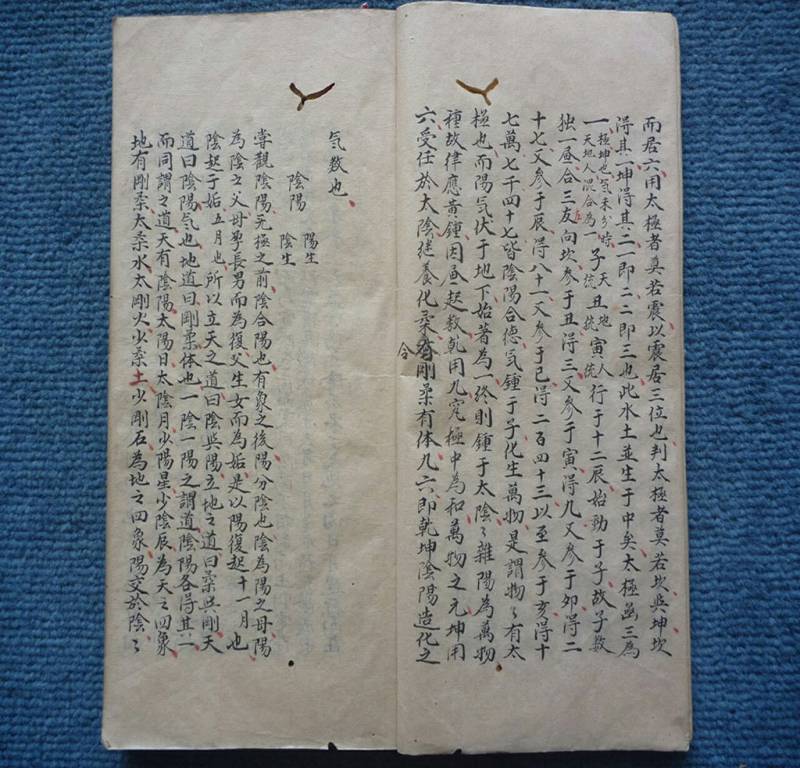 而居六用太極者莫若震以震居三位也判太極者莫若坎與坤坎
得其一坤得其二一即二二即三也此水土並生于中矣太極函三為
一極坤也氣未分時天地人混合為一子天統丑地統寅人統行于十二辰始動于子故子數
独一昼合三友向坎参于丑得三又参于寅得九又参于夘得二
十七又参于辰得八十一又参于巳得二百四十三以至参于亥得十
七萬七千四十七皆陰陽合德气鍾于子化生萬物是謂物〻有太
極也而陽气伏于地下始著為一終則鍾于太陰〻雜陽為萬物
種故律應黃鍾因昼起数乾用九究極中為和萬物之元坤用
六受任於大陰継養化柔剛柔有体九六即乾坤陰陽造化之
令
气数也
陰陽 陽生 陰生
嘗觀陰陽无極之前陰合陽也有象之後陽分陰也陰為陽之母陽
為陰之父母孕長男而為復父生女而為姤是以陽復起十一月也
陰起于姤五月也所以立天之道曰陰與陽立地之道曰柔與剛天
道曰陰陽气也地道曰剛柔体也一陰一陽之謂道陰陽各得其二
而同謂之道天有陰陽太陽日太陰月少陽星少陰辰為天之四象
地有剛柔太柔水太剛火少柔土少剛石為地之四象陽交於陰〻